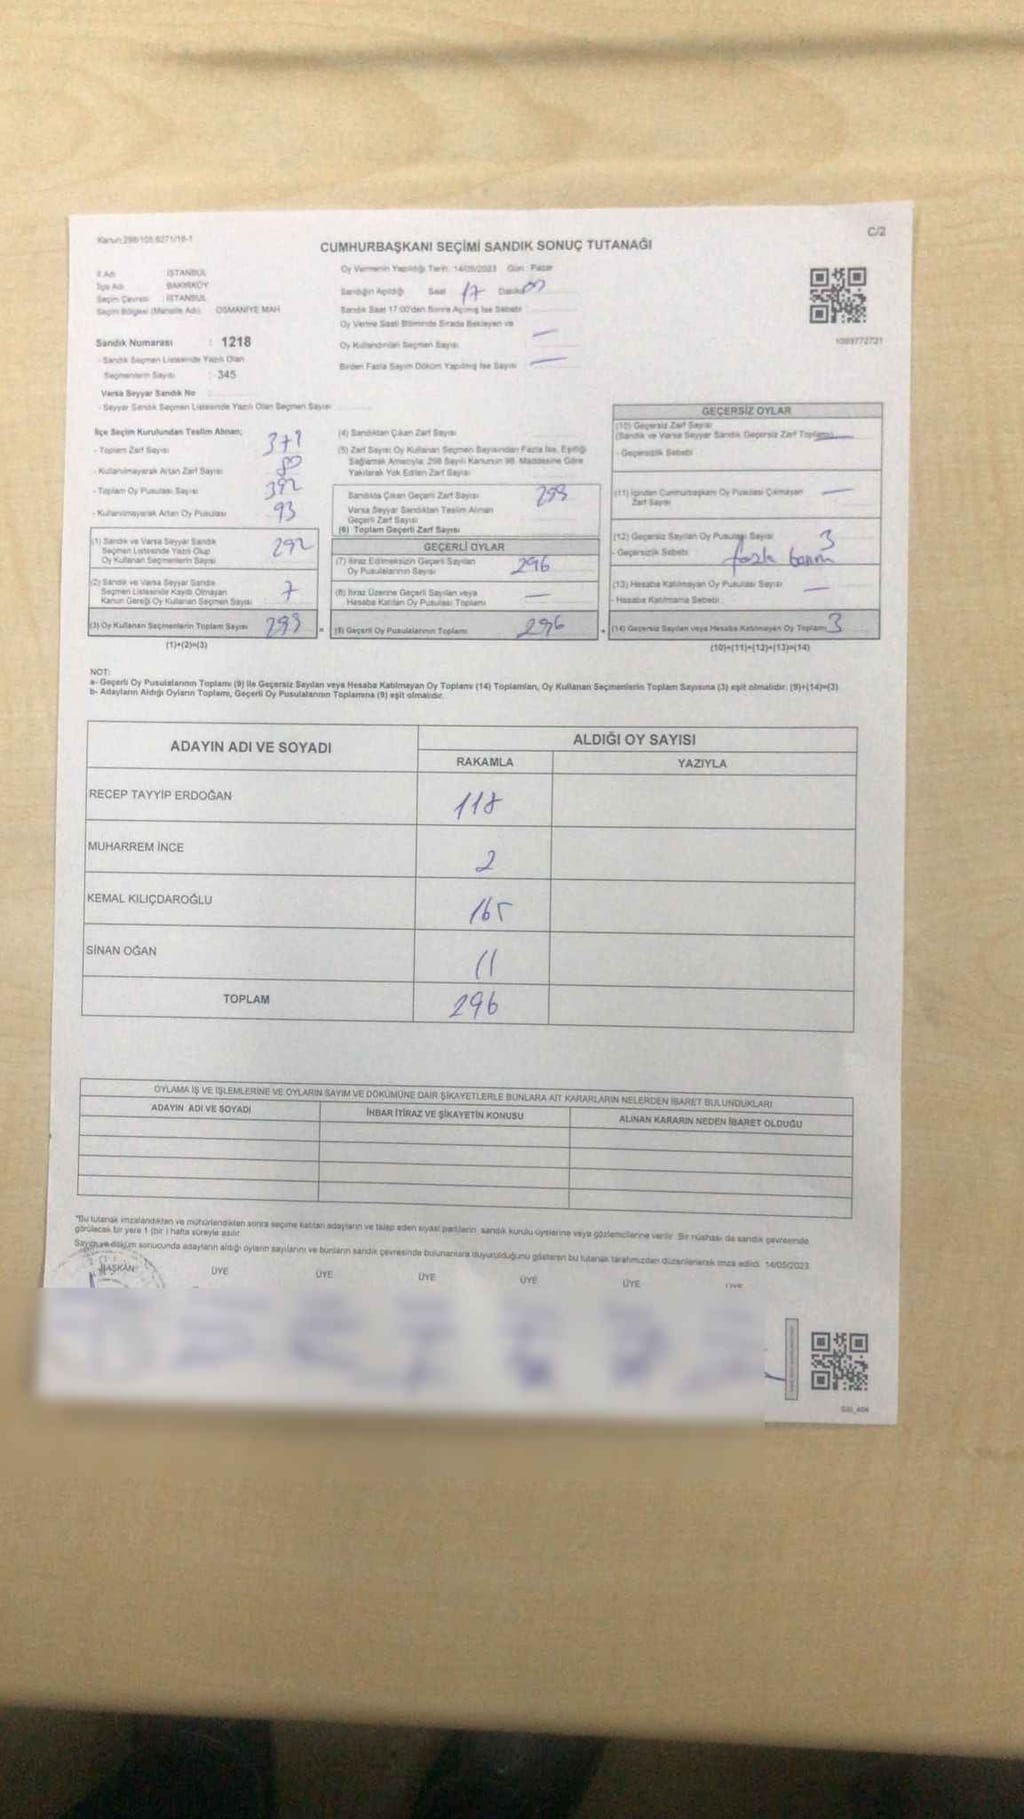 Kanun:298/105,6271/18-1
C/2
CUMHURBAŞKANI SEÇİMİ SANDIK SONUÇ TUTANAĞI
İl Adı : İSTANBUL
İlçe Adı : BAKIRKÖY
Seçim Çevresi : İSTANBUL
Seçim Bölgesi (Mahalle Adı) : OSMANİYE MAH
Sandık Numarası : 1218
- Sandık Seçmen Listesinde Yazılı Olan
Seçmenlerin Sayısı : 345
Varsa Seyyar Sandık No
- Seyyar Sandık Seçmen Listesinde Yazılı Olan Seçmen Sayısı
Oy Vermenin Yapıldığı Tarih: 14/05/2023 Gün: Pazar
Sandığın Açıldığı Saat 17 Dakika 00
Sandık Saat 17:00'den Sonra Açılmış İse Sebebi
Oy Verme Saati Bitiminde Sırada Bekleyen ve
Oy Kullandırılan Seçmen Sayısı —
Birden Fazla Sayım Döküm Yapılmış İse Sayısı —
1089772721
İlçe Seçim Kurulundan Teslim Alınan;
- Toplam Zarf Sayısı 379
- Kullanılmayarak Artan Zarf Sayısı 80
- Toplam Oy Pusulası Sayısı 392
- Kullanılmayarak Artan Oy Pusulası 93
(1) Sandık ve Varsa Seyyar Sandık
Seçmen Listesinde Yazılı Olup
Oy Kullanan Seçmenlerin Sayısı 292
(2) Sandık ve Varsa Seyyar Sandık
Seçmen Listesinde Kayıtlı Olmayan
Kanun Gereği Oy Kullanan Seçmen Sayısı 7
(3) Oy Kullanan Seçmenlerin Toplam Sayısı 299
(1)+(2)=(3)
(4) Sandıktan Çıkan Zarf Sayısı
(5) Zarf Sayısı Oy Kullanan Seçmen Sayısından Fazla İse, Eşitliği
Sağlamak Amacıyla; 298 Sayılı Kanunun 98. Maddesine Göre
Yakılarak Yok Edilen Zarf Sayısı
Sandıkta Çıkan Geçerli Zarf Sayısı 299
Varsa Seyyar Sandıktan Teslim Alınan
Geçerli Zarf Sayısı
(6) Toplam Geçerli Zarf Sayısı
GEÇERLİ OYLAR
(7) İtiraz Edilmeksizin Geçerli Sayılan
Oy Pusulalarının Sayısı 296
(8) İtiraz Üzerine Geçerli Sayılan veya
Hesaba Katılan Oy Pusulası Toplamı —
(9) Geçerli Oy Pusulalarının Toplamı 296
GEÇERSİZ OYLAR
(10) Geçersiz Zarf Sayısı
(Sandık ve Varsa Seyyar Sandık Geçersiz Zarf Toplamı) —
- Geçersizlik Sebebi
(11) İçinden Cumhurbaşkanı Oy Pusulası Çıkmayan —
Zarf Sayısı
(12) Geçersiz Sayılan Oy Pusulası Sayısı 3
- Geçersizlik Sebebi fazla basım
(13) Hesaba Katılmayan Oy Pusulası Sayısı —
- Hesaba Katılmama Sebebi
(14) Geçersiz Sayılan veya Hesaba Katılmayan Oy Toplamı 3
(10)+(11)+(12)+(13)=(14)
NOT:
a- Geçerli Oy Pusulalarının Toplamı (9) ile Geçersiz Sayılan veya Hesaba Katılmayan Oy Toplamı (14) Toplamları, Oy Kullanan Seçmenlerin Toplam Sayısına (3) eşit olmalıdır. (9)+(14)=(3)
b- Adayların Aldığı Oyların Toplamı, Geçerli Oy Pusulalarının Toplamına (9) eşit olmalıdır.
ADAYIN ADI VE SOYADI
ALDIĞI OY SAYISI
RAKAMLA YAZIYLA
RECEP TAYYİP ERDOĞAN 118
MUHARREM İNCE 2
KEMAL KILIÇDAROĞLU 165
SİNAN OĞAN 11
TOPLAM 296
OYLAMA İŞ VE İŞLEMLERİNE VE OYLARIN SAYIM VE DÖKÜMÜNE DAİR ŞİKAYETLERLE BUNLARA AİT KARARLARIN NELERDEN İBARET BULUNDUKLARI
ADAYIN ADI VE SOYADI İHBAR İTİRAZ VE ŞİKAYETİN KONUSU ALINAN KARARIN NEDEN İBARET OLDUĞU
*Bu tutanak imzalandıktan ve mühürlendikten sonra seçime katılan adayların ve talep eden siyasi partilerin sandık kurulu üyelerine veya gözlemcilerine verilir. Bir nüshası da sandık çevresinde
görülecek bir yere 1 (bir) hafta süreyle asılır.
Sayım ve döküm sonucunda adayların aldığı oyların sayılarını ve bunların sandık çevresinde bulunanlara duyurulduğunu gösteren bu tutanak tarafımızdan düzenlenerek imza edildi. 14/05/2023
BAŞKAN ÜYE ÜYE ÜYE ÜYE ÜYE ÜYE